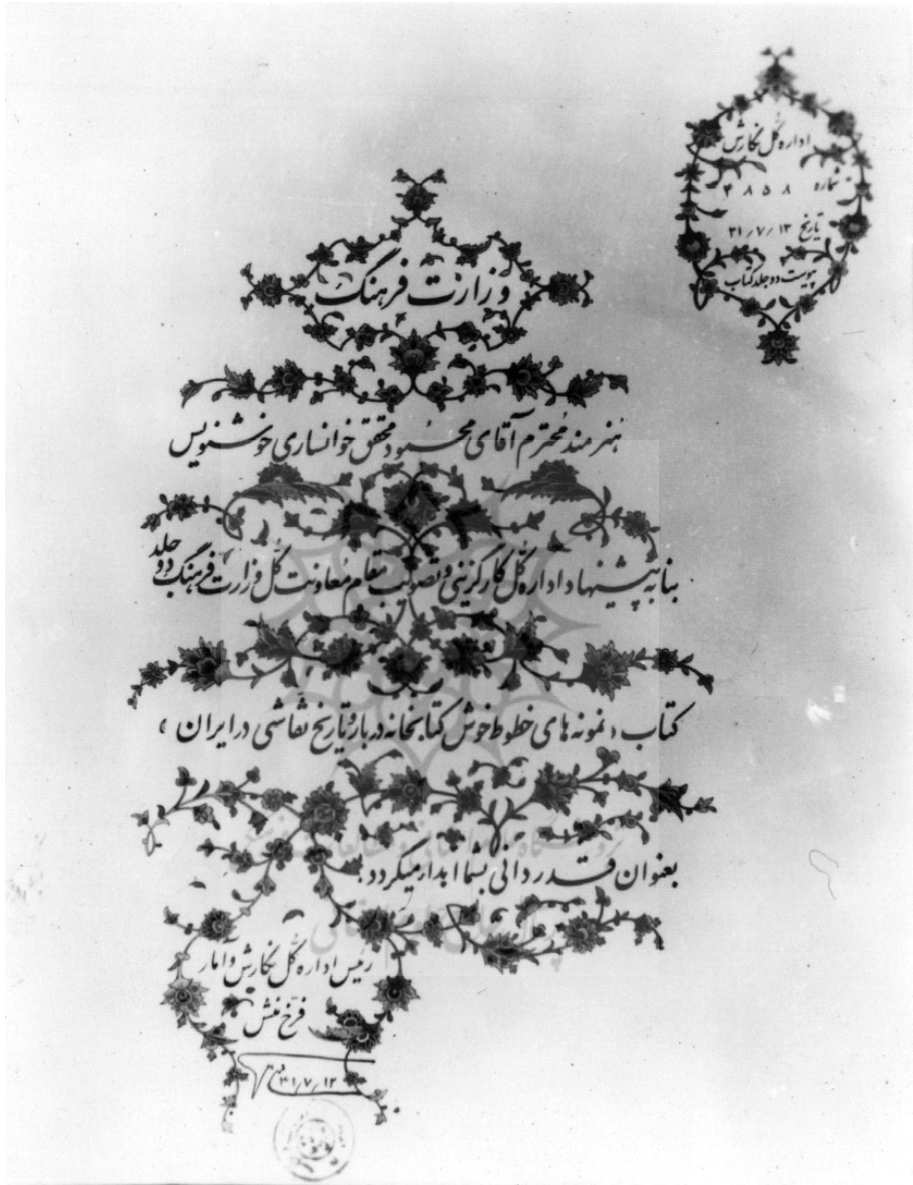 اداره کل نگارش
شماره ۴۸۵۸
تاریخ ۳۱/۷/۱۳
پیوست دو جلد کتاب
وزارت فرهنگ
هنرمند محترم آقای محمود محقق خوانساری خوشنویس
بنا به پیشنهاد اداره کل کارگزینی و تصویب مقام معاونت کل وزارت فرهنگ دو جلد
کتاب «نمونه های خطوط خوش کتابخانه دربار و تاریخ نقاشی در ایران»
بعنوان قدردانی بشما ابدار میگردد؛
رئیس اداره کل نگارش و آمار
فرخ منش
۴۱/۷/۱۲